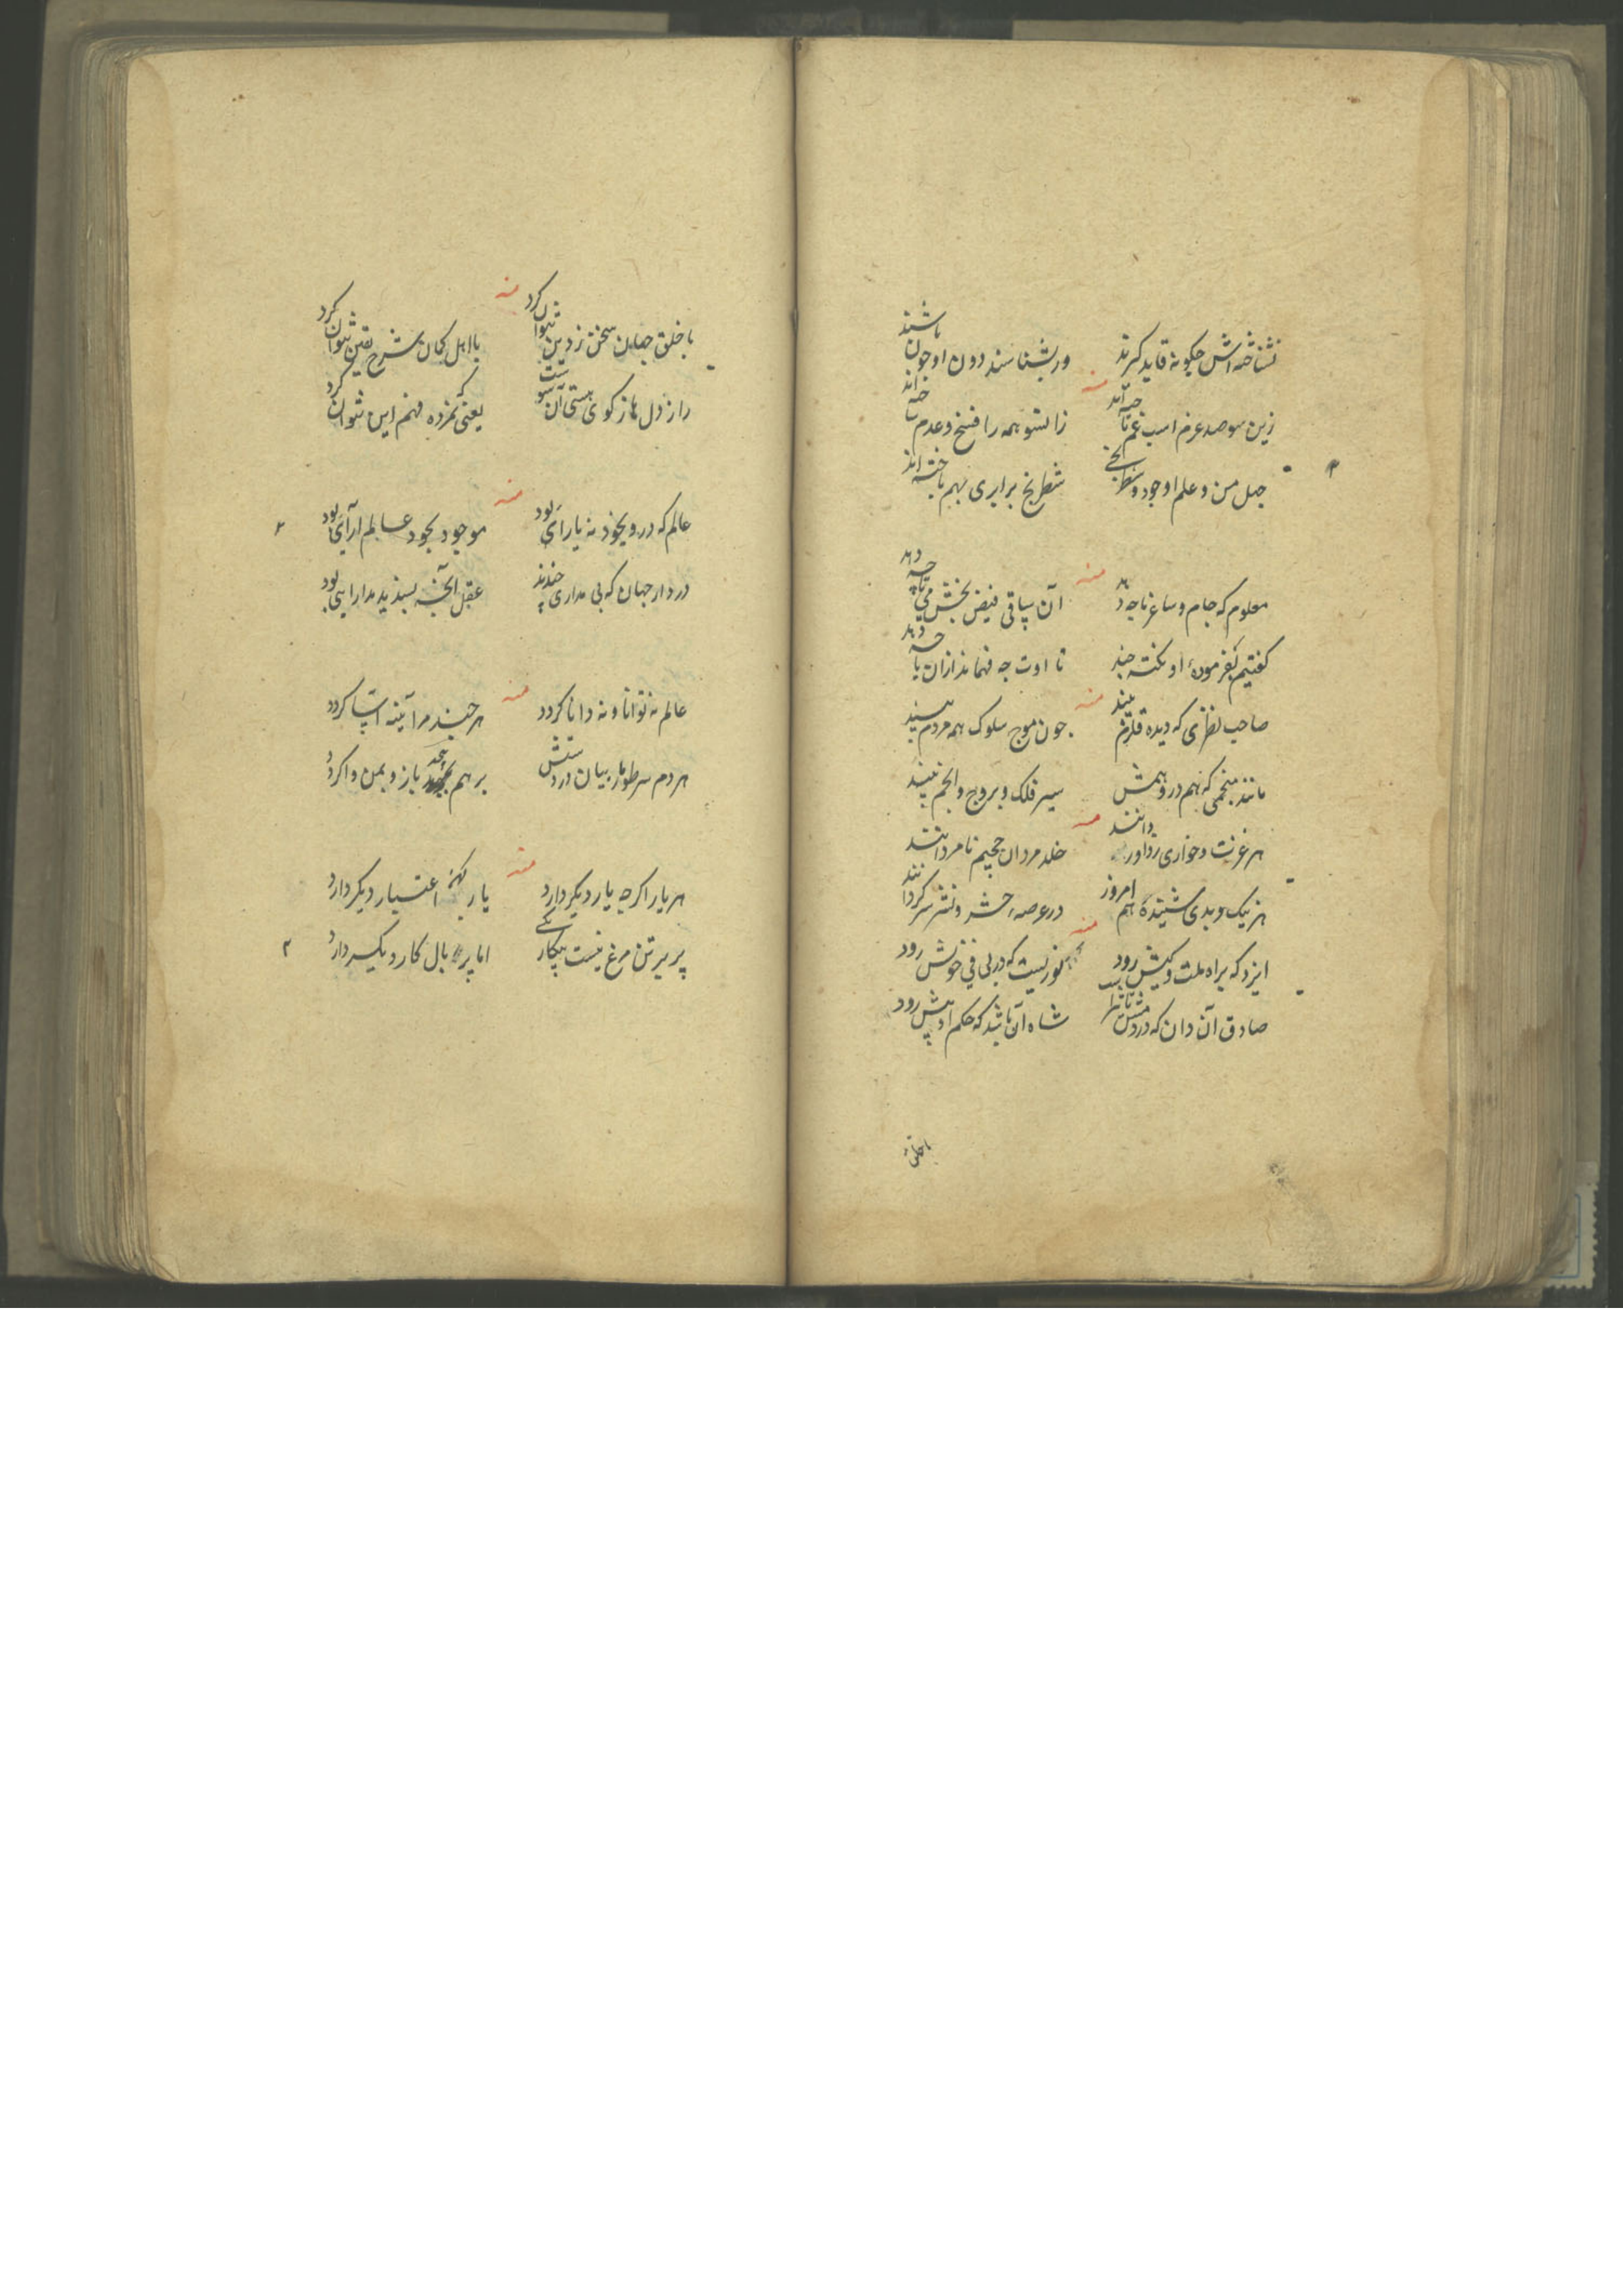 نشناخته اش چگونه قاید گیرند
ور بشناسند دون او چون باشند
منه
زین سو صد عرم اسب غم تاخته اند
زانسو همه را فسخ و عدم ساخته اند
جهل من و علم او جود و شطرنجی
شطرنج برابری بهم باخته اند
منه
معلوم که جام و ساغر تا چه دهد
آن ساقی فیض بخش می تا چه دهد
گفتیم بفرموده او نکته چند
تا اوت چه فهماند ازان یا چه دهد
منه
صاحب نظری که دیده قلزم بیند
چون موج سلوک همه مردم بیند
مانند منجمی که هم در وهمش
سیر فلک و بروج و انجم بیند
منه
هر عزت و خواری ز داور دانند
خلد مردان جحیم نامردانند
هر نیک و بدی شنیده هم امروز
در عرصه حشر و نشر سرگردانند
منه
ایزد که براه ملت و کیش رود
نوریست که در پی خویش رود
صادق آن دان که در دمش تاثیر است
شاه آن باشد که حکم او پیش رود
با خلق
منه
با خلق جهان سخن ز دین نتوان کرد
با اهل گمان شرح یقین نتوان کرد
راز دل ها ز کوی هستی آن سوست
یعنی که نمرده فهم این نتوان کرد
منه
عالم که درو بخود نه یارائی بود
موجود بجود عالم آرائی بود
در دار جهان که بی مداری خندند
عقل آنچه پسندید مدارایی بود
۲
منه
عالم نه توانا و نه دانا گردد
هر چند مرا آینه آسا گردد
هر دم سر طومار بیان در دستش
بر هم پیچد باز و بمن وا گردد
منه
هر یار اگرچه یار دیگر دارد
یار کهنه اعتبار دیگر دارد
پر بر تن مرغ نیست بیکار یکی
اما پر بال کار دیگر دارد
۲